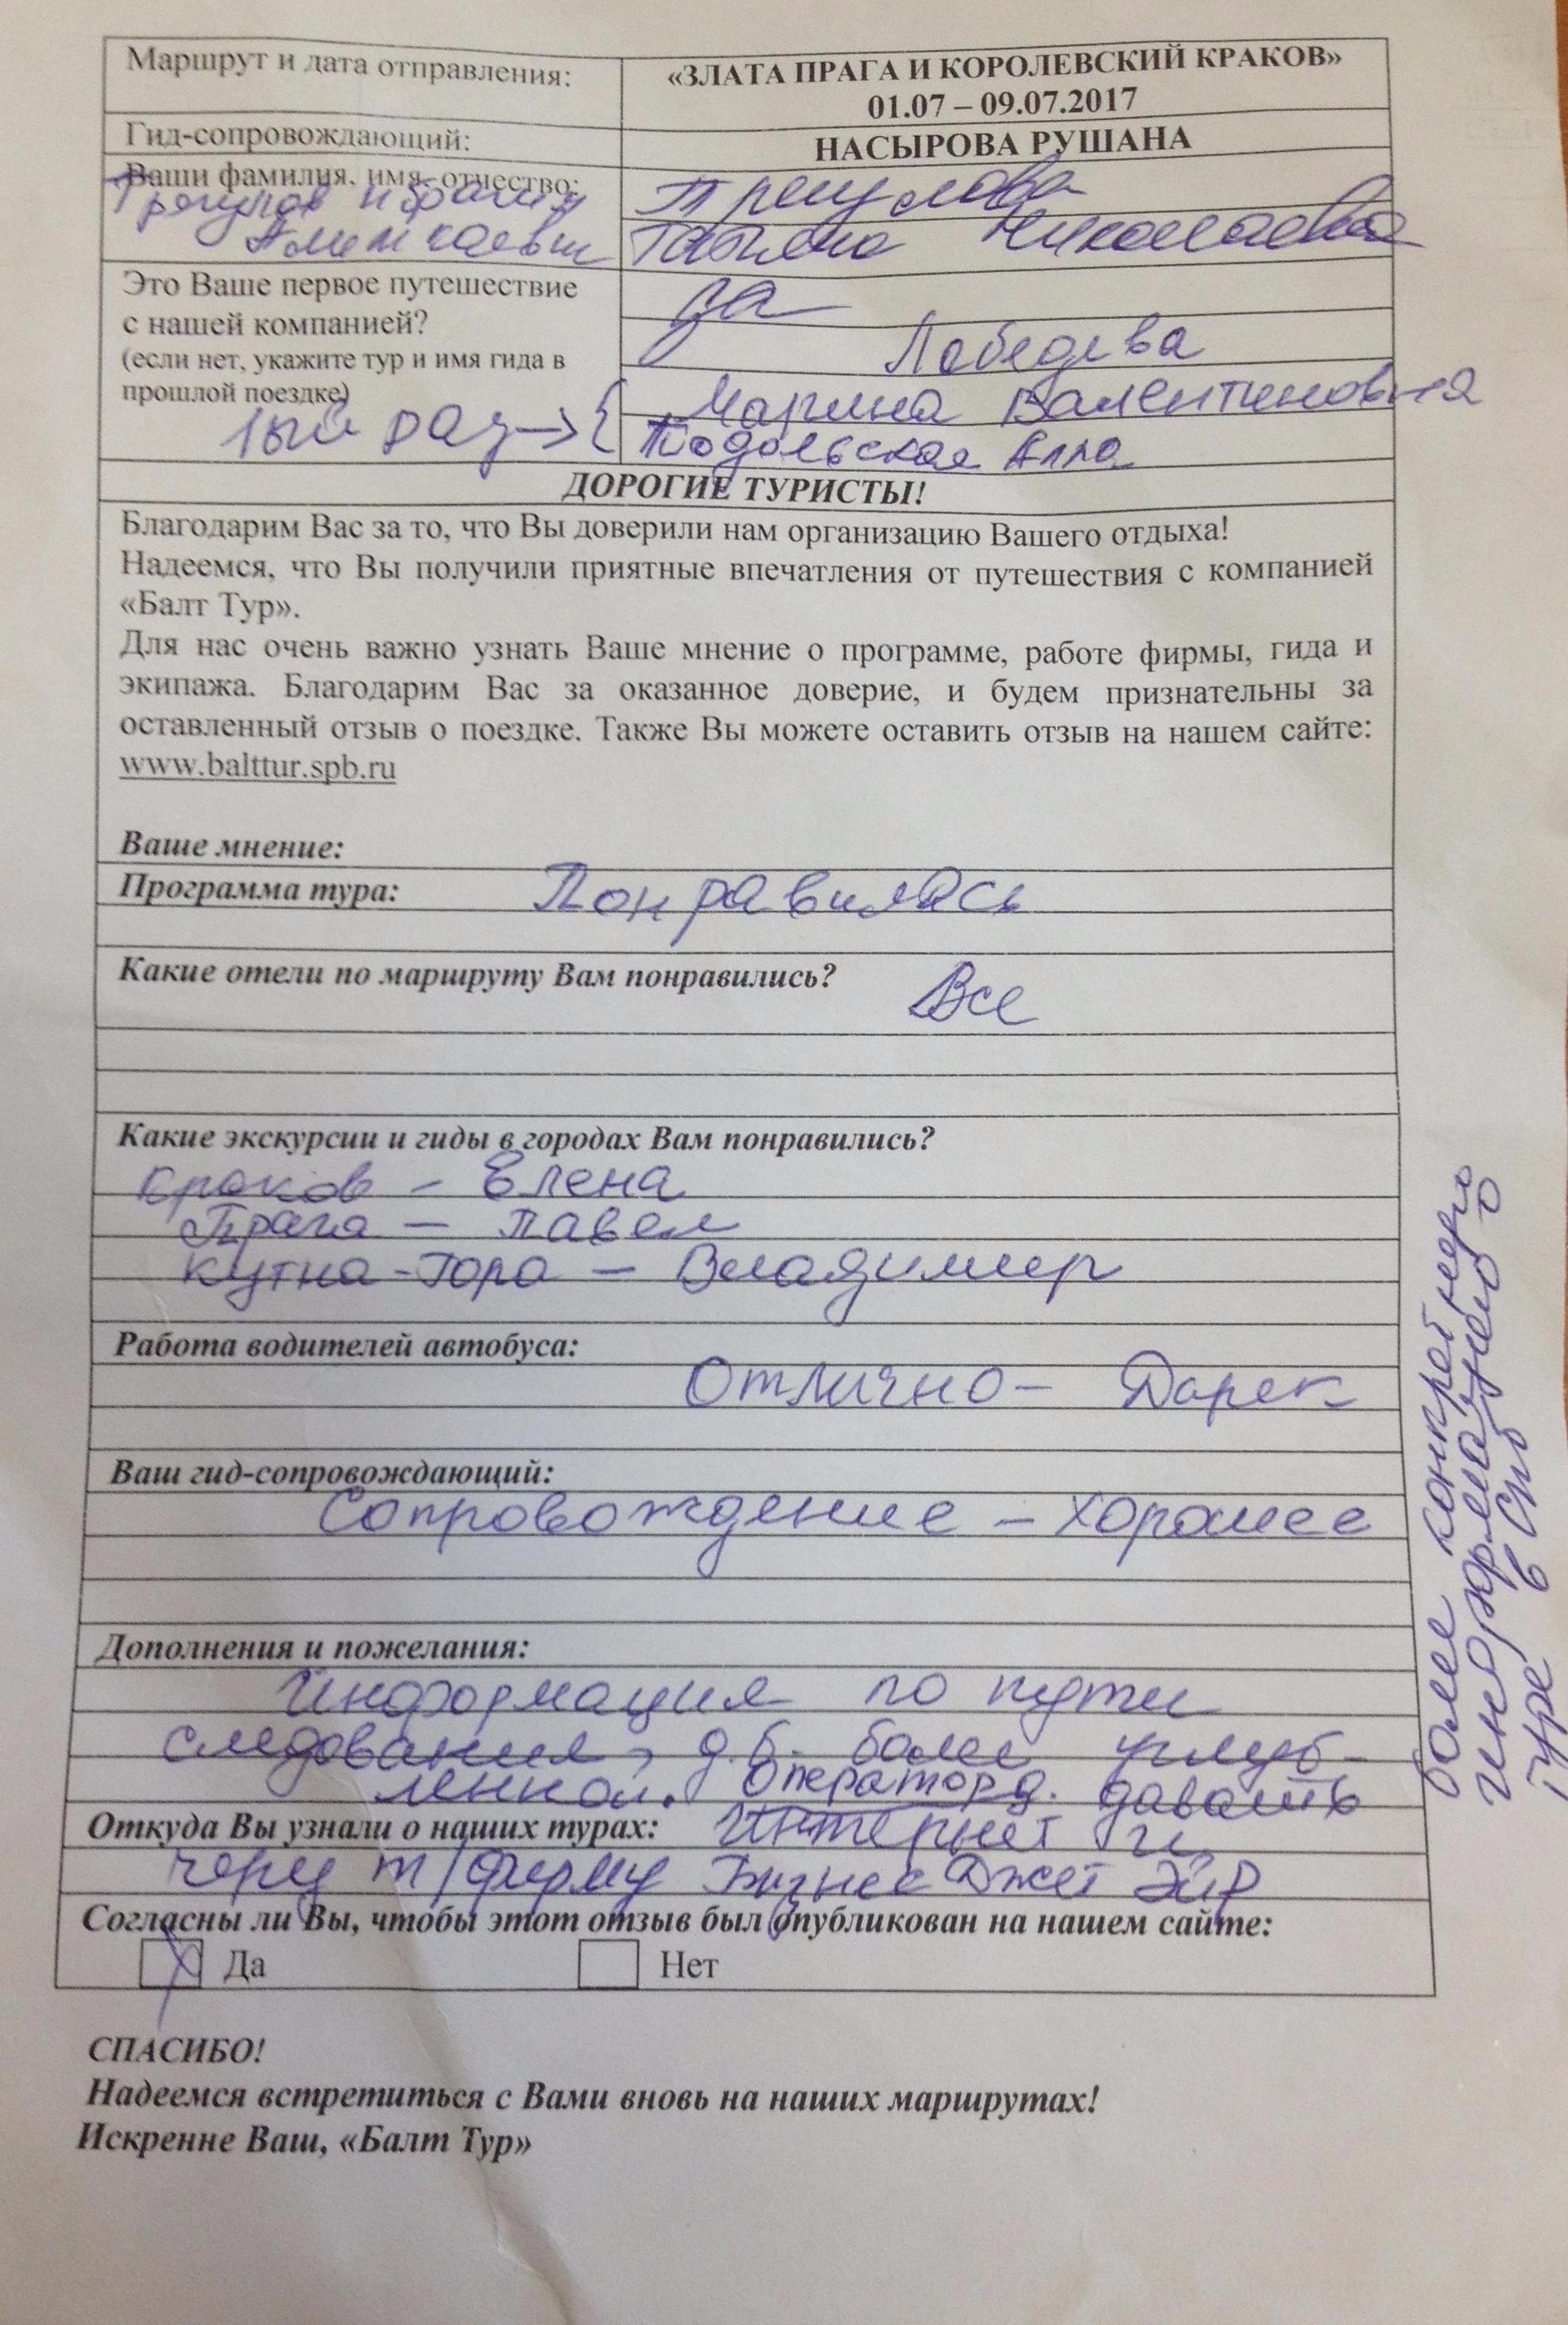 Маршрут и дата отправления:
«ЗЛАТА ПРАГА И КОРОЛЕВСКИЙ КРАКОВ»
01.07 – 09.07.2017
Гид-сопровождающий:
НАСЫРОВА РУШАНА
Ваши фамилия, имя, отчество:
Трегулов Ибрагим
Трегулова
Татьяна Николаевна
Это Ваше первое путешествие
с нашей компанией?
(если нет, укажите тур и имя гида в
прошлой поездке)
да
Лебедева
Марина Валентиновна
1ый раз → { Подольская Алла
ДОРОГИЕ ТУРИСТЫ!
Благодарим Вас за то, что Вы доверили нам организацию Вашего отдыха!
Надеемся, что Вы получили приятные впечатления от путешествия с компанией
«Балт Тур».
Для нас очень важно узнать Ваше мнение о программе, работе фирмы, гида и
экипажа. Благодарим Вас за оказанное доверие, и будем признательны за
оставленный отзыв о поездке. Также Вы можете оставить отзыв на нашем сайте:
www.balttur.spb.ru
Ваше мнение:
Программа тура: Понравилась
Какие отели по маршруту Вам понравились? Все
Какие экскурсии и гиды в городах Вам понравились?
Краков - Елена
Прага - Павел
Кутна-Гора - Владимир
Работа водителей автобуса:
Отлично - Дарек
Ваш гид-сопровождающий:
Сопровождение - хорошее
Дополнения и пожелания:
Информация по пути
следования, д.б. более углуб-
ленной. Оператор д. давать
более конкретную
информацию о
туре в СПб
Откуда Вы узнали о наших турах: Интернет и
через т/фирму Бизнес Джет Эйр
Согласны ли Вы, чтобы этот отзыв был опубликован на нашем сайте:
Да Нет
СПАСИБО!
Надеемся встретиться с Вами вновь на наших маршрутах!
Искренне Ваш, «Балт Тур»